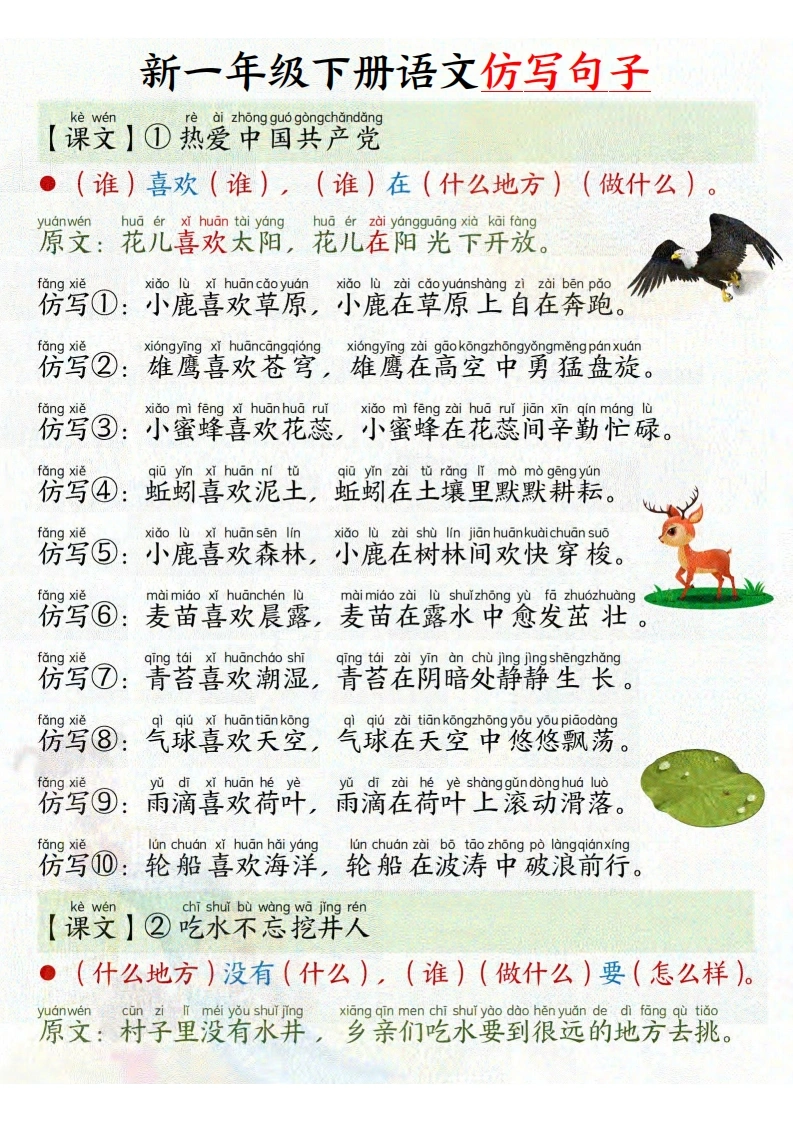 新一年级下册语文仿写句子
kè wén rè ài zhōng guó gòng chǎn dǎng
【课文】①热爱中国共产党
●（谁）喜欢（谁），（谁）在（什么地方）（做什么）。
yuán wén huā ér xǐ huān tài yáng huā ér zài yáng guāng xià kāi fàng
原文：花儿喜欢太阳，花儿在阳光下开放。
fǎng xiě xiǎo lù xǐ huān cǎo yuán xiǎo lù zài cǎo yuán shàng zì zài bēn pǎo
仿写①：小鹿喜欢草原，小鹿在草原上自在奔跑。
fǎng xiě xióng yīng xǐ huān cāng qióng xióng yīng zài gāo kōng zhōng yǒng měng pán xuán
仿写②：雄鹰喜欢苍穹，雄鹰在高空中勇猛盘旋。
fǎng xiě xiǎo mì fēng xǐ huān huā ruǐ xiǎo mì fēng zài huā ruǐ jiān xīn qín máng lù
仿写③：小蜜蜂喜欢花蕊，小蜜蜂在花蕊间辛勤忙碌。
fǎng xiě qiū yǐn xǐ huān ní tǔ qiū yǐn zài tǔ rǎng lǐ mò mò gēng yún
仿写④：蚯蚓喜欢泥土，蚯蚓在土壤里默默耕耘。
fǎng xiě xiǎo lù xǐ huān sēn lín xiǎo lù zài shù lín jiān huān kuài chuān suō
仿写⑤：小鹿喜欢森林，小鹿在树林间欢快穿梭。
fǎng xiě mài miáo xǐ huān chén lù mài miáo zài lù shuǐ zhōng yù fā zhuó zhuàng
仿写⑥：麦苗喜欢晨露，麦苗在露水中愈发茁壮。
fǎng xiě qīng tái xǐ huān cháo shī qīng tái zài yīn àn chù jìng jìng shēng zhǎng
仿写⑦：青苔喜欢潮湿，青苔在阴暗处静静生长。
fǎng xiě qì qiú xǐ huān tiān kōng qì qiú zài tiān kōng zhōng yōu yōu piāo dàng
仿写⑧：气球喜欢天空，气球在天空中悠悠飘荡。
fǎng xiě yǔ dī xǐ huān hé yè yǔ dī zài hé yè shàng gǔn dòng huá luò
仿写⑨：雨滴喜欢荷叶，雨滴在荷叶上滚动滑落。
fǎng xiě lún chuán xǐ huān hǎi yáng lún chuán zài bō tāo zhōng pò làng qián xíng
仿写⑩：轮船喜欢海洋，轮船在波涛中破浪前行。
kè wén chī shuǐ bù wàng wā jǐng rén
【课文】②吃水不忘挖井人
●（什么地方）没有（什么），（谁）（做什么）要（怎么样）。
yuán wén cūn zi lǐ méi yǒu shuǐ jǐng xiāng qīn men chī shuǐ yào dào hěn yuǎn de dì fāng qù tiāo
原文：村子里没有水井，乡亲们吃水要到很远的地方去挑。